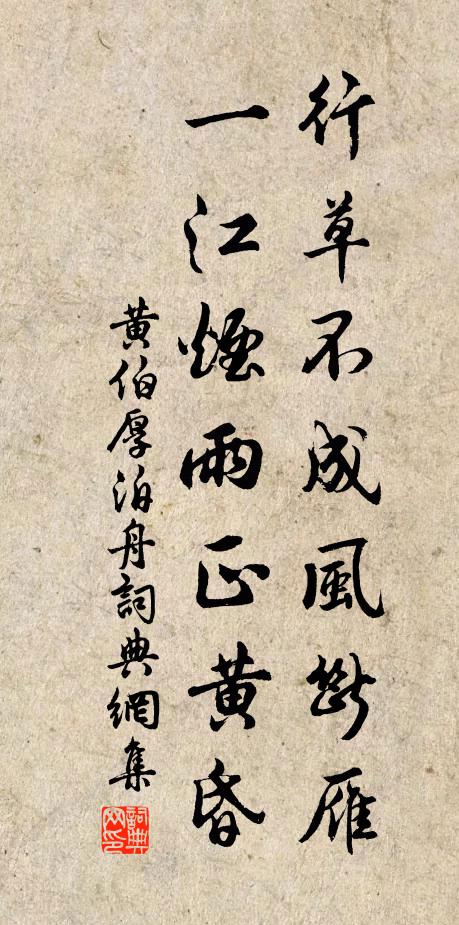 行草不成風斷雁
一江煙雨正黃昏
黃伯厚泊舟詞典網集
詞典网印